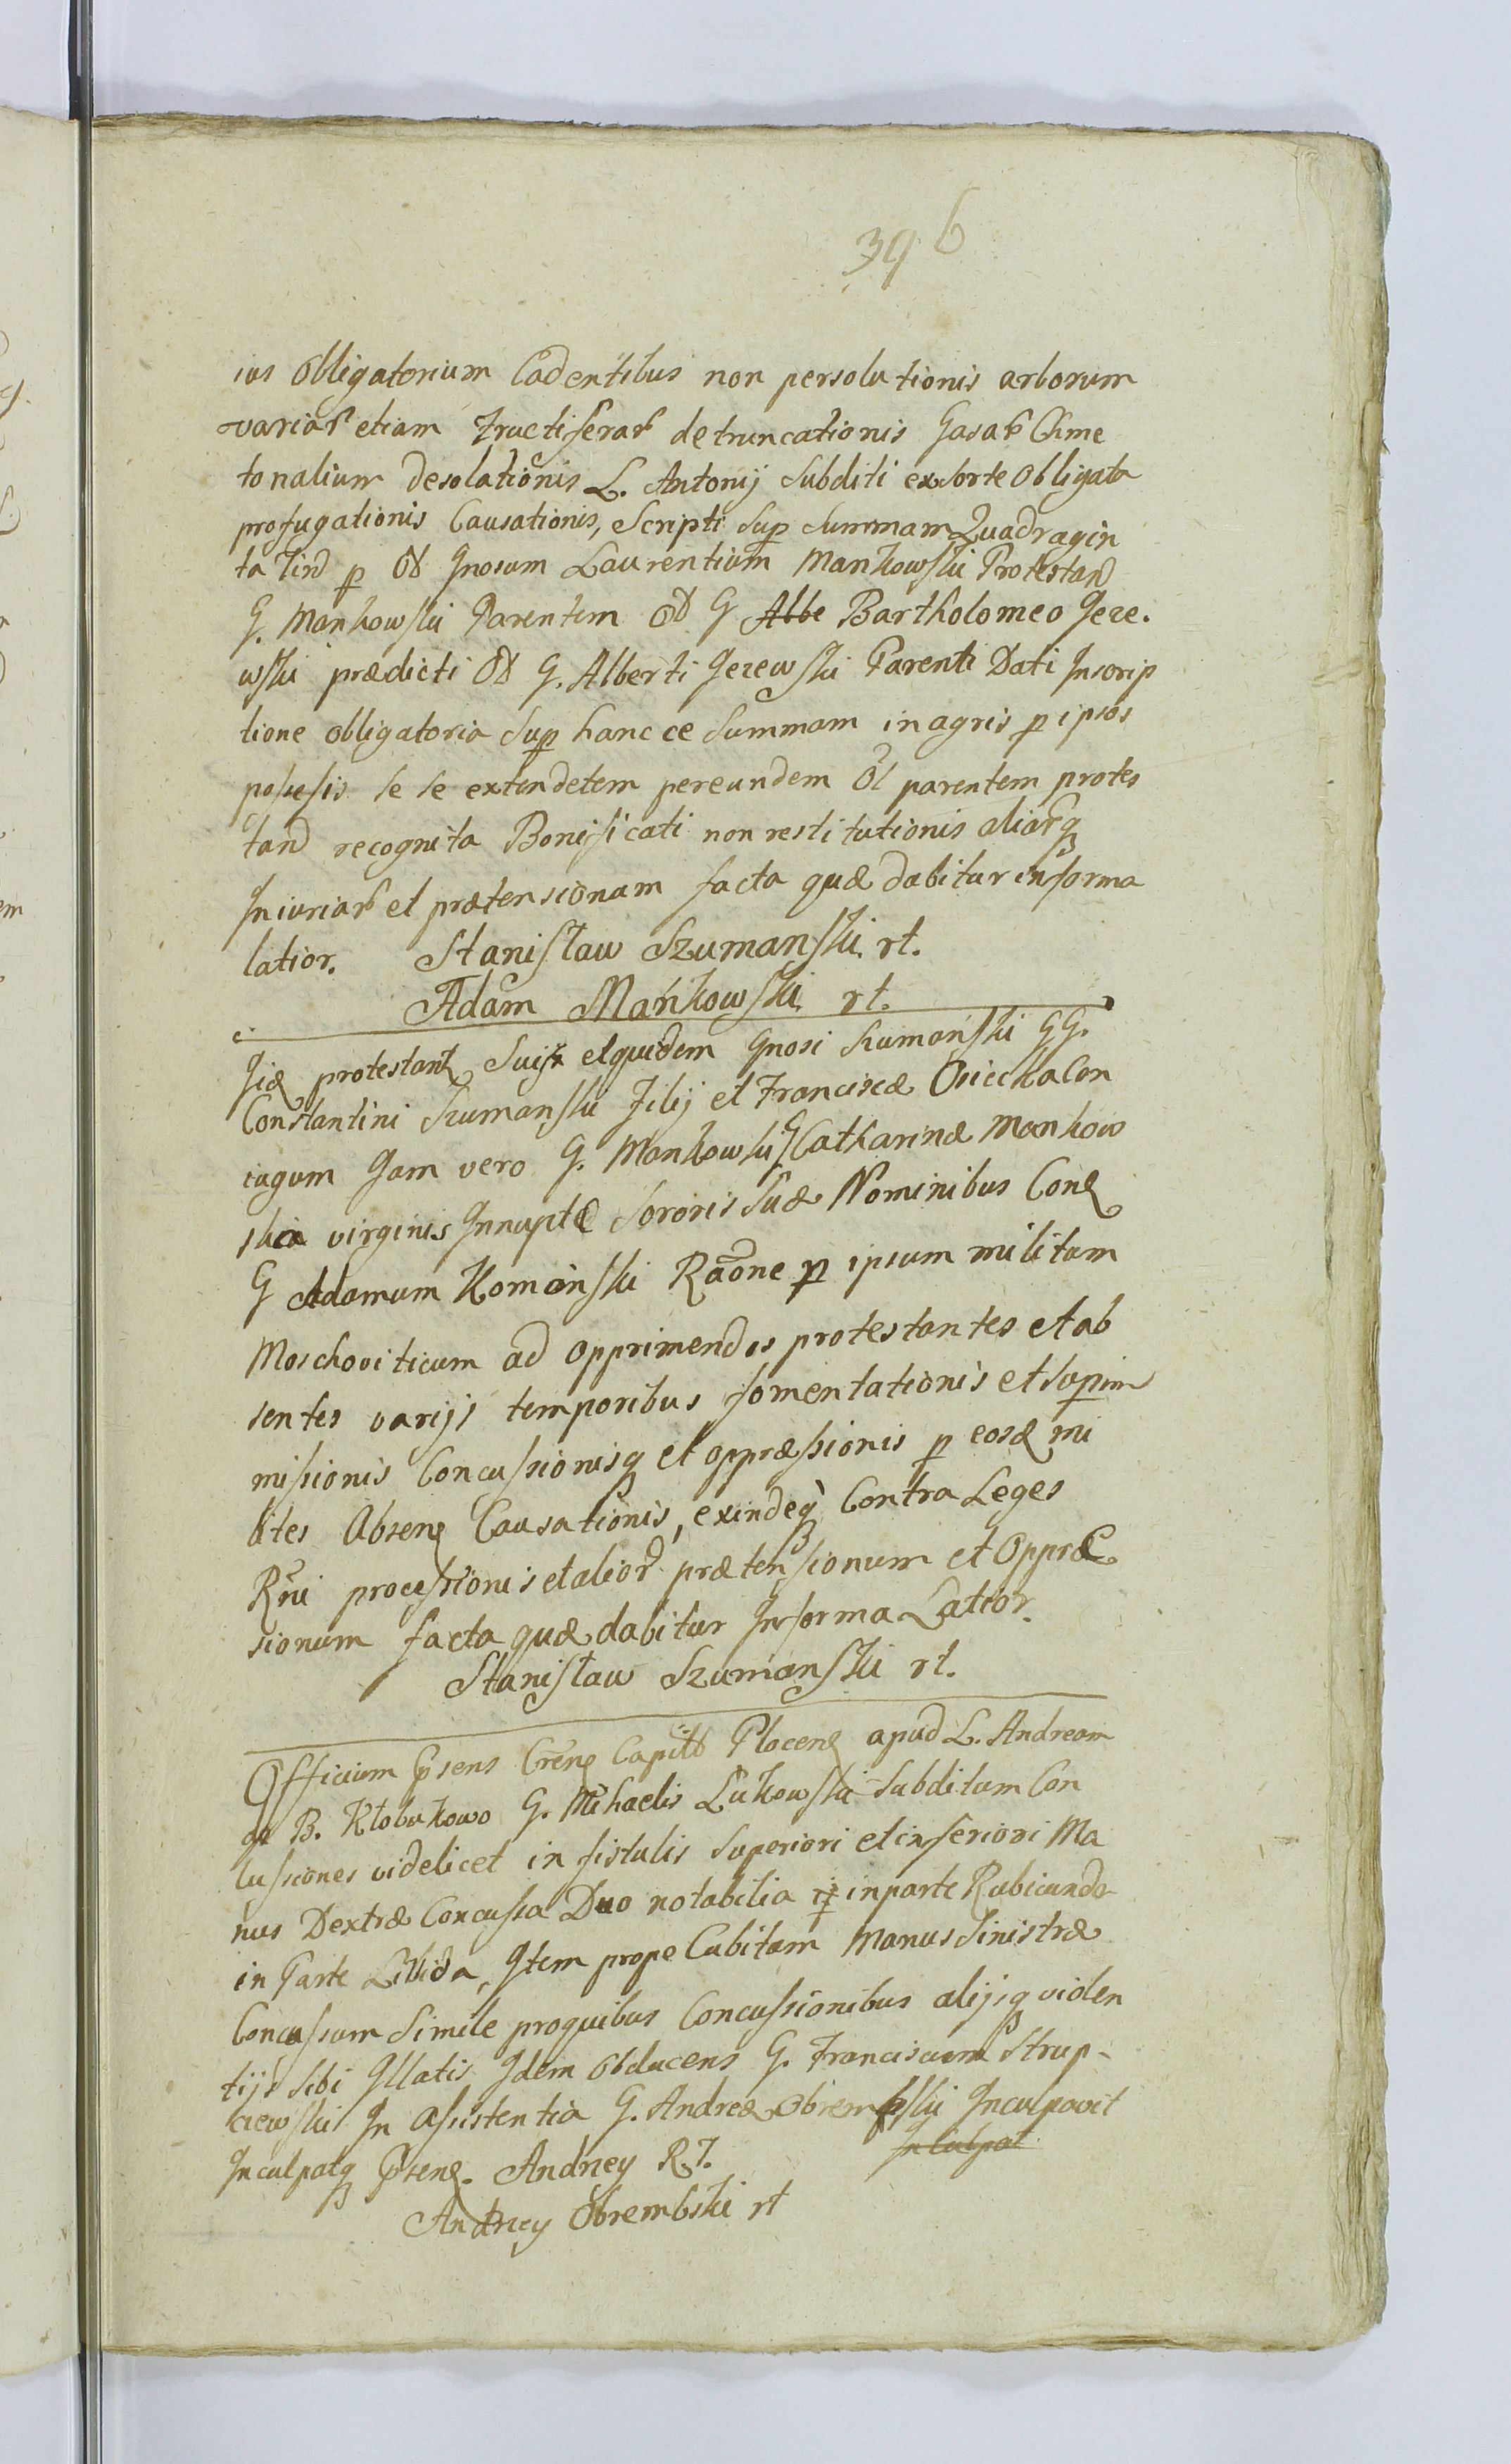 396
ius Obligatorium Cadentibus non persolutionis arborum
variar etiam Fructiferar detruncationis Casar Chme
tonalium desolationis L. Antonij Subditi ex sorte Obligata
profugationis Causationis, Scripti Sup Summam Quadragin
ta p Ol Gnosum Laurentium Mankowski Protestand
G. Mankowski Parentem Ol G Albe Bartholomeo Jeze-
wski prædicti Ol G. Alberti Jezewski Parenti Dati Inscrip
tione obligatoria Sup hance Summam in agris p ipsos
possessis se se extendetem per eundem Ol parentem protes
tand recognita Bonificati non restitutionis aliarq
Iniuriar et prætensionum facta quæ dabitur in forma
latior. Stanisław Szumanski rt.
Adam Mańkowski rt.
protestant Suis et quidem Gnosi Szumanski GG.
Constantini Szumanski Filij et Franciscæ Osiecka Con
iugum Jam vero G. Mankowski G Catharinæ Mankow
ska virginis Innuptæ Sororis Suæ Nominibus Con
G Adamum Komoński Raone p ipsum militum
Moschoviticum ad opprimendos protestantes et ab
sentes varijs temporibus fomentationis et Supim
missionis Concussionisq et oppræssionis p eosd mi
lites Absen Causationis, exindeq Contra Leges
Rni processionis et alior prætensionum et Oppræ
sionum facta quæ dabitur In forma Latior.
Stanisław Szumanski rt.
Officium Psens Cren Capitlo Plocen apud L. Andream
de B. Kłobukowo G. Michaelis Lukowski Subditum Con
tussiones videlicet in fistulis Superiori et inferiori Ma
nus Dextræ Concussa Duo notabilia in parte Rubicunda
in Parte Livida, Item prope Cubitum Manus Sinistræ
Concussum Simile pro quibus Concussionibus alijsq violen
tijs Sibi Illatis Idem Obducens G. Franciscum Strup-
czewski In Assistentia G. Andreæ Obrembski Inculpavit
Inculpatq Psen. Andrzey RT. Inculpat
Andrzey Obrembski rt